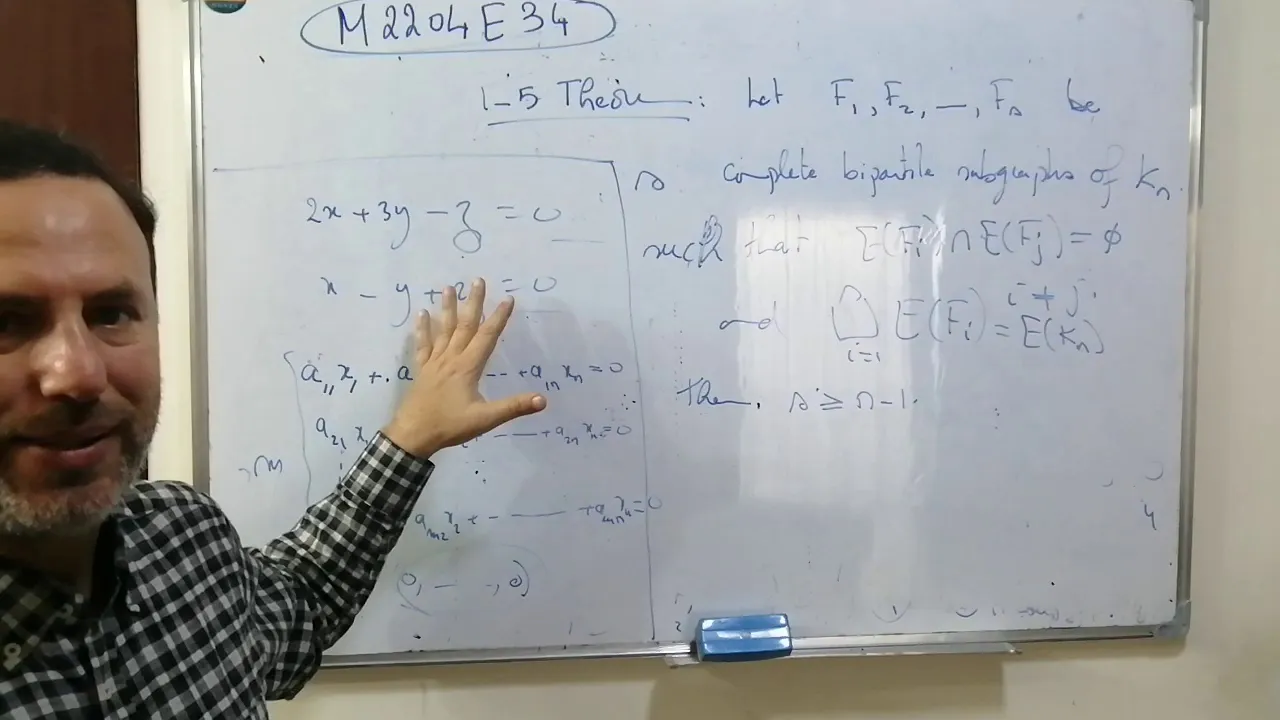 M2204E34
1-5 Theorem: Let F₁, F₂, —, Fₛ be
s complete bipartite subgraphs of Kₙ
such that E(Fᵢ) ∩ E(Fⱼ) = ∅
i ≠ j
and ⋃ᵢ₌₁ E(Fᵢ) = E(Kₙ)
then, s ≥ n-1.
2x + 3y - z = 0
x - y + = 0
a₁₁x₁ + a -- + a₁ₙxₙ = 0
a₂₁x + —— + a₂ₙxₙ = 0
m
aₘ₂x₂ + - —— + aₘₙxₙ = 0
(0, — -, 0)